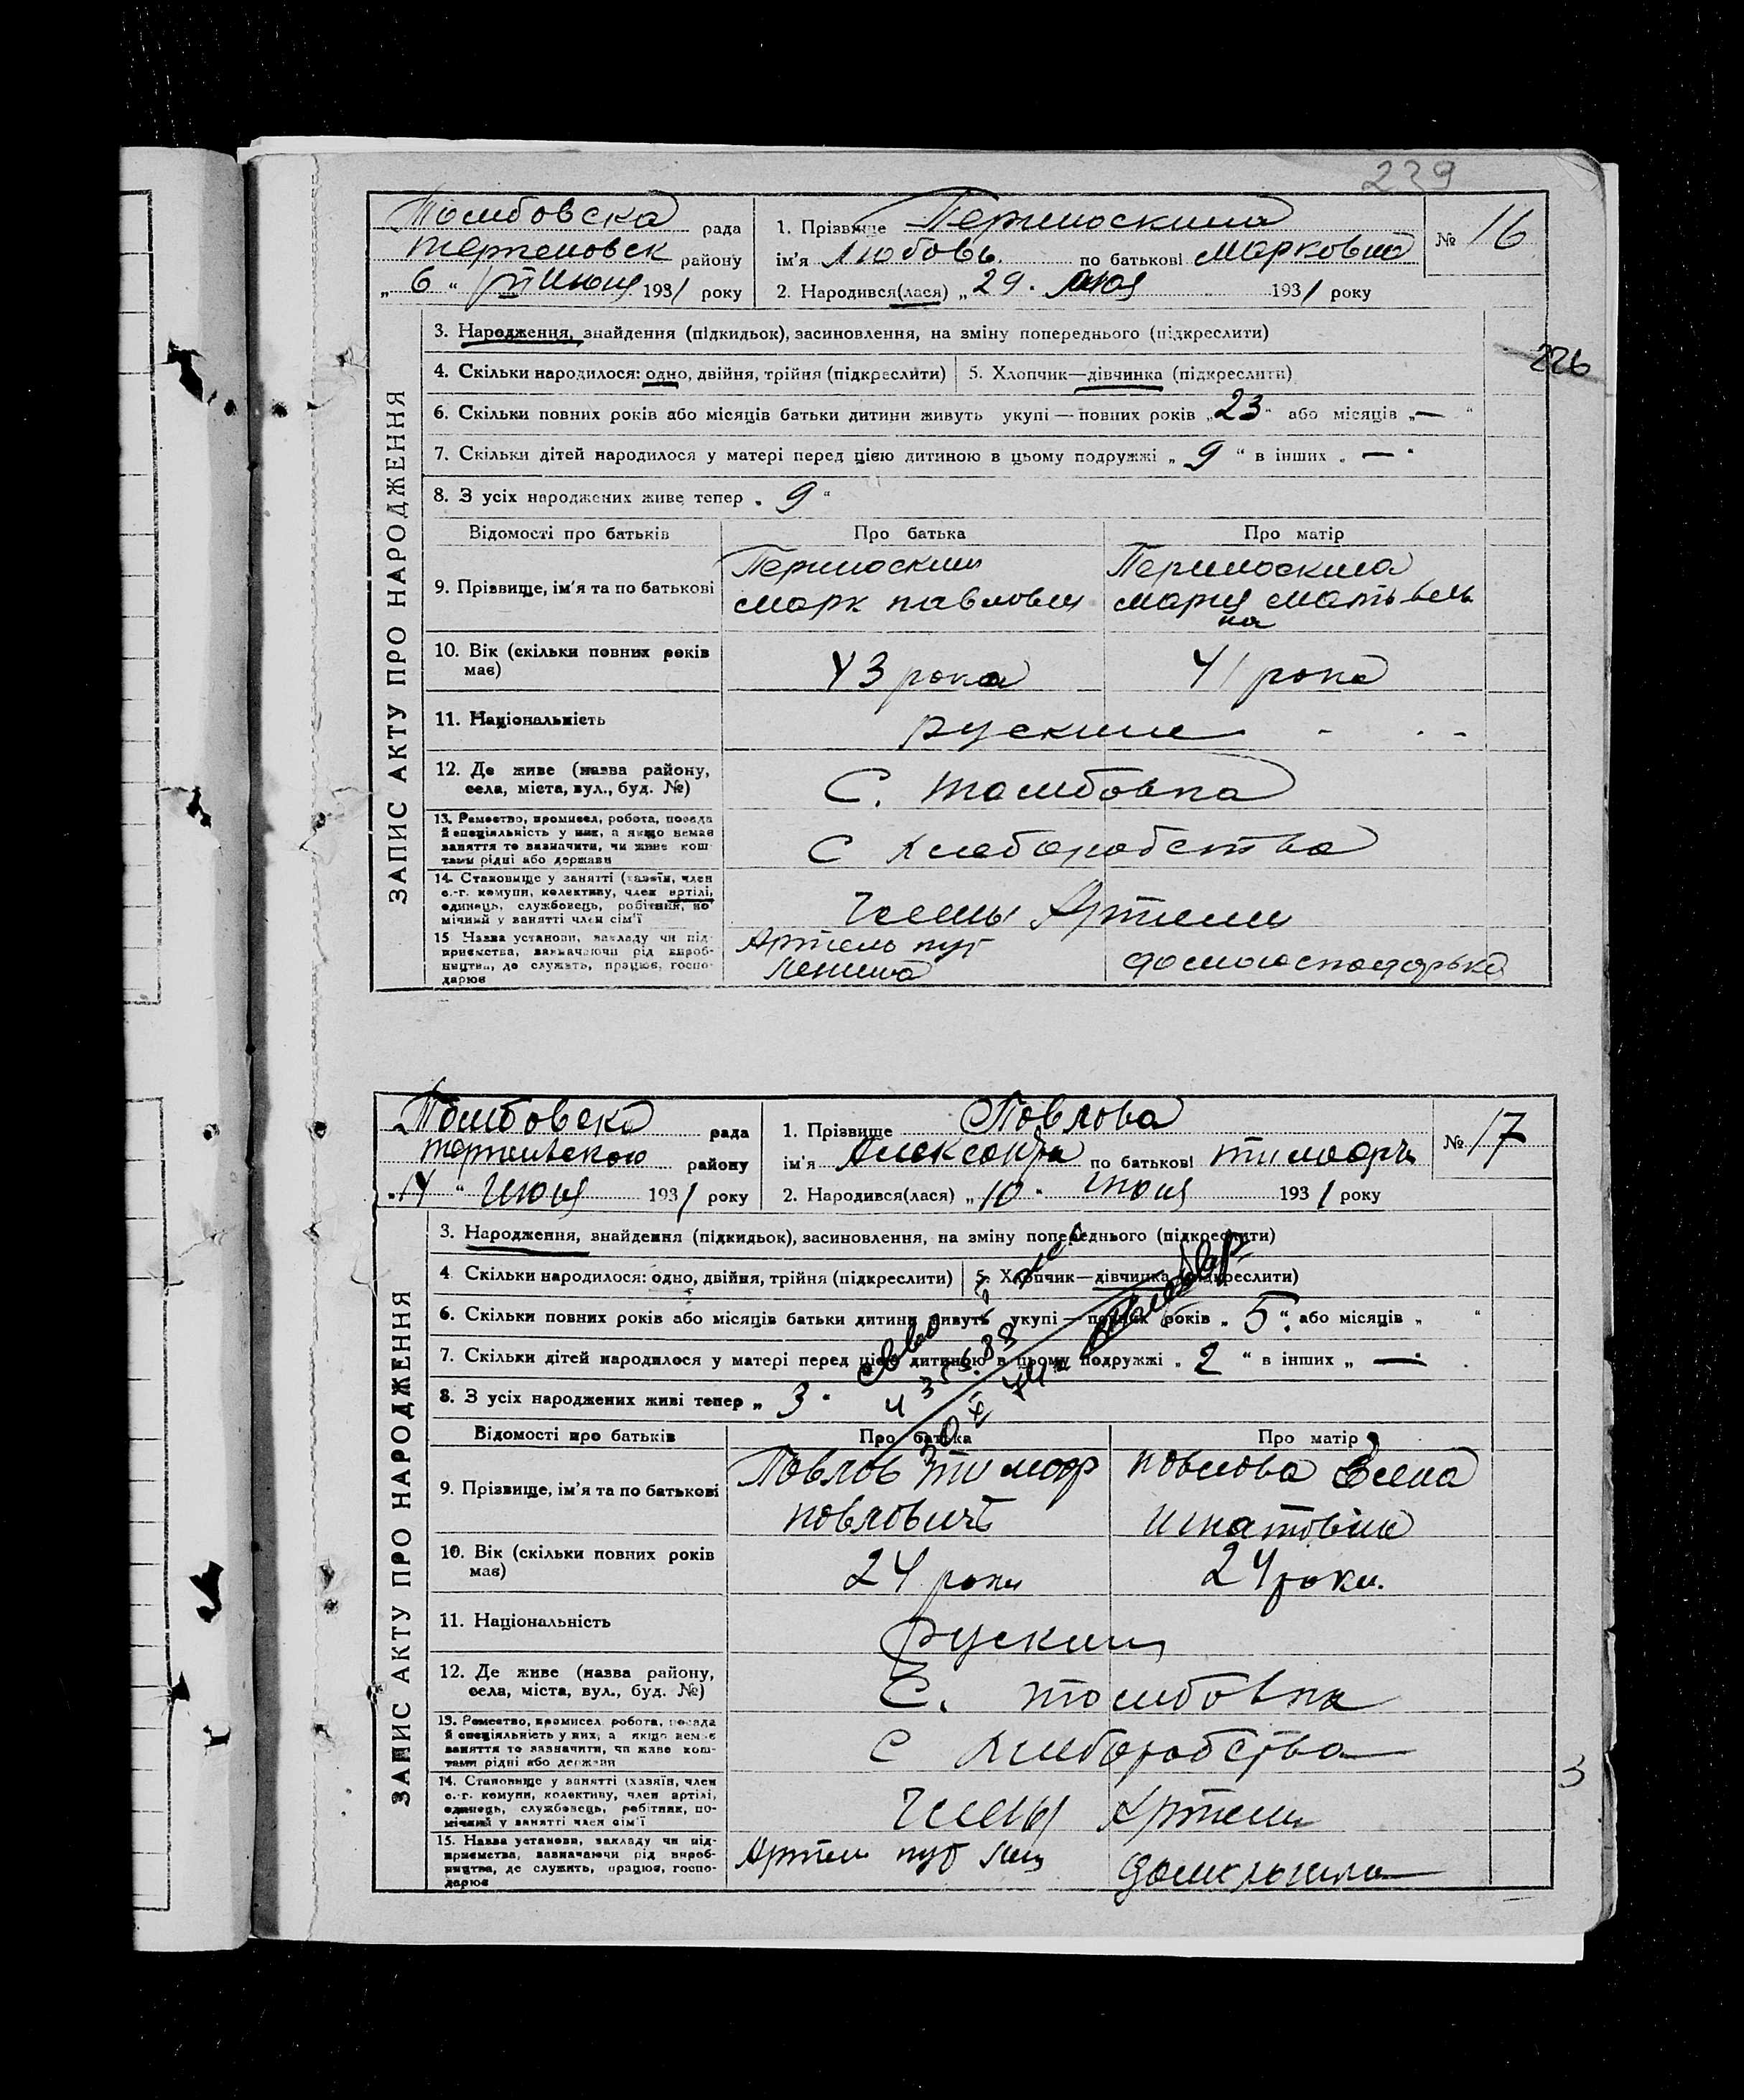 239
Тамбовска рада
району
„ 6 “ Июня 1931 року
1. Прізвище
ім'я Любовь по батькові Марковна
2. Народився(лася) „ 29. 1931 року
№ 16
226
ЗАПИС АКТУ ПРО НАРОДЖЕННЯ
3. Народження, знайдення (підкидьок), засиновлення, на зміну попереднього (підкреслити)
4. Скільки народилося: одно, двійня, трійня (підкреслити) 5. Хлопчик—дівчинка (підкреслити)
6. Скільки повних років або місяців батьки дитини живуть укупі — повних років „ 23 “ або місяців „ — “
7. Скільки дітей народилося у матері перед цією дитиною в цьому подружжі „ 9 “ в інших „ — “
8. З усіх народжених живе тепер „ 9 “
Відомості про батьків Про батька Про матір
9. Прізвище, ім'я та по батькові
Марк Павлович Мария Мать вель
на
10. Вік (скільки повних років має) 43 рока 41 рока
11. Національність руские
12. Де живе (назва району, села, міста, вул., буд. №) С. Тамбовка
13. Ремество, промисел, робота, посада й спеціяльність у них, а якщо немає заняття то зазначити, чи живе коштами рідні або держави С хлеборобства
14. Становище у занятті (хазяїн, член с.-г. комуни, колективу, член артілі, одинець, службовець, робітник, помічний у занятті член сім'ї Члены Артели
15. Назва установи, закладу чи підприємства, зазначаючи рід виробництва, де служить, працює, господарює Артель пут Ленина
Тамбовска рада
району
„ 14 “ Июня 1931 року
1. Прізвище Повлова
ім'я Александра по батькові
2. Народився(лася) „ 10 “ Июня 1931 року
№ 17
ЗАПИС АКТУ ПРО НАРОДЖЕННЯ
3. Народження, знайдення (підкидьок), засиновлення, на зміну попереднього (підкреслити)
4. Скільки народилося: одно, двійня, трійня (підкреслити) 5. Хлопчик—дівчинка (підкреслити)
6. Скільки повних років або місяців батьки дитини живуть укупі — повних років „ 5 “ або місяців „ “
7. Скільки дітей народилося у матері перед цією дитиною в цьому подружжі „ 2 “ в інших „ — “
8. З усіх народжених живі тепер „ 3 “
Відомості про батьків Про батька Про матір
9. Прізвище, ім'я та по батькові Повлов Тимоф Повлова Елена
Повловичъ
10. Вік (скільки повних років має) 24 роки 24 роки.
11. Національність
12. Де живе (назва району, села, міста, вул., буд. №) С. Тамбовка
13. Ремество, промисел, робота, посада й спеціяльність у них, а якщо немає заняття то зазначити, чи живе коштами рідні або держави С хлеборобства
14. Становище у занятті (хазяїн, член с.-г. комуни, колективу, член артілі, одинець, службовець, робітник, помічний у занятті член сім'ї Члены Артели
15. Назва установи, закладу чи підприємства, зазначаючи рід виробництва, де служить, працює, господарює Артели пут Лен
3